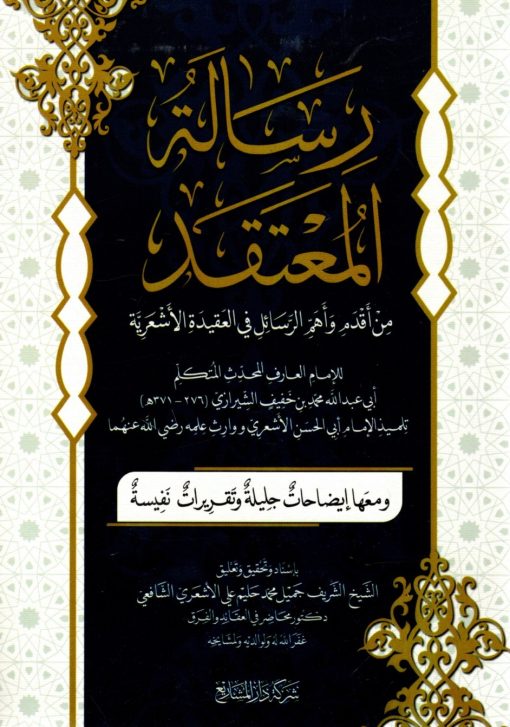 رِسَالَةُ
المُعْتَقَد
مِنْ أَقْدَمِ وَأَهَمِّ الرَّسَائِلِ فِي العَقِيدَةِ الأَشْعَرِيَّة
للإمام العارف المحدث المتكلم
أبي عبد الله محمد بن خفيف الشيرازي (٢٧٦ - ٣٧١هـ)
تلميذ الإمام أبي الحسن الأشعري ووارث علمه رضي الله عنهما
ومعها إيضاحاتٌ جليلةٌ وتقريراتٌ نفيسةٌ
بإسناد وتحقيق وتعليق
الشيخ الشريف جميل محمد حليم علي الأشعري الشافعي
دكتور محاضر في العقائد والفرق
غفر الله له ولوالديه ومشايخه
شركة دار المشاريع